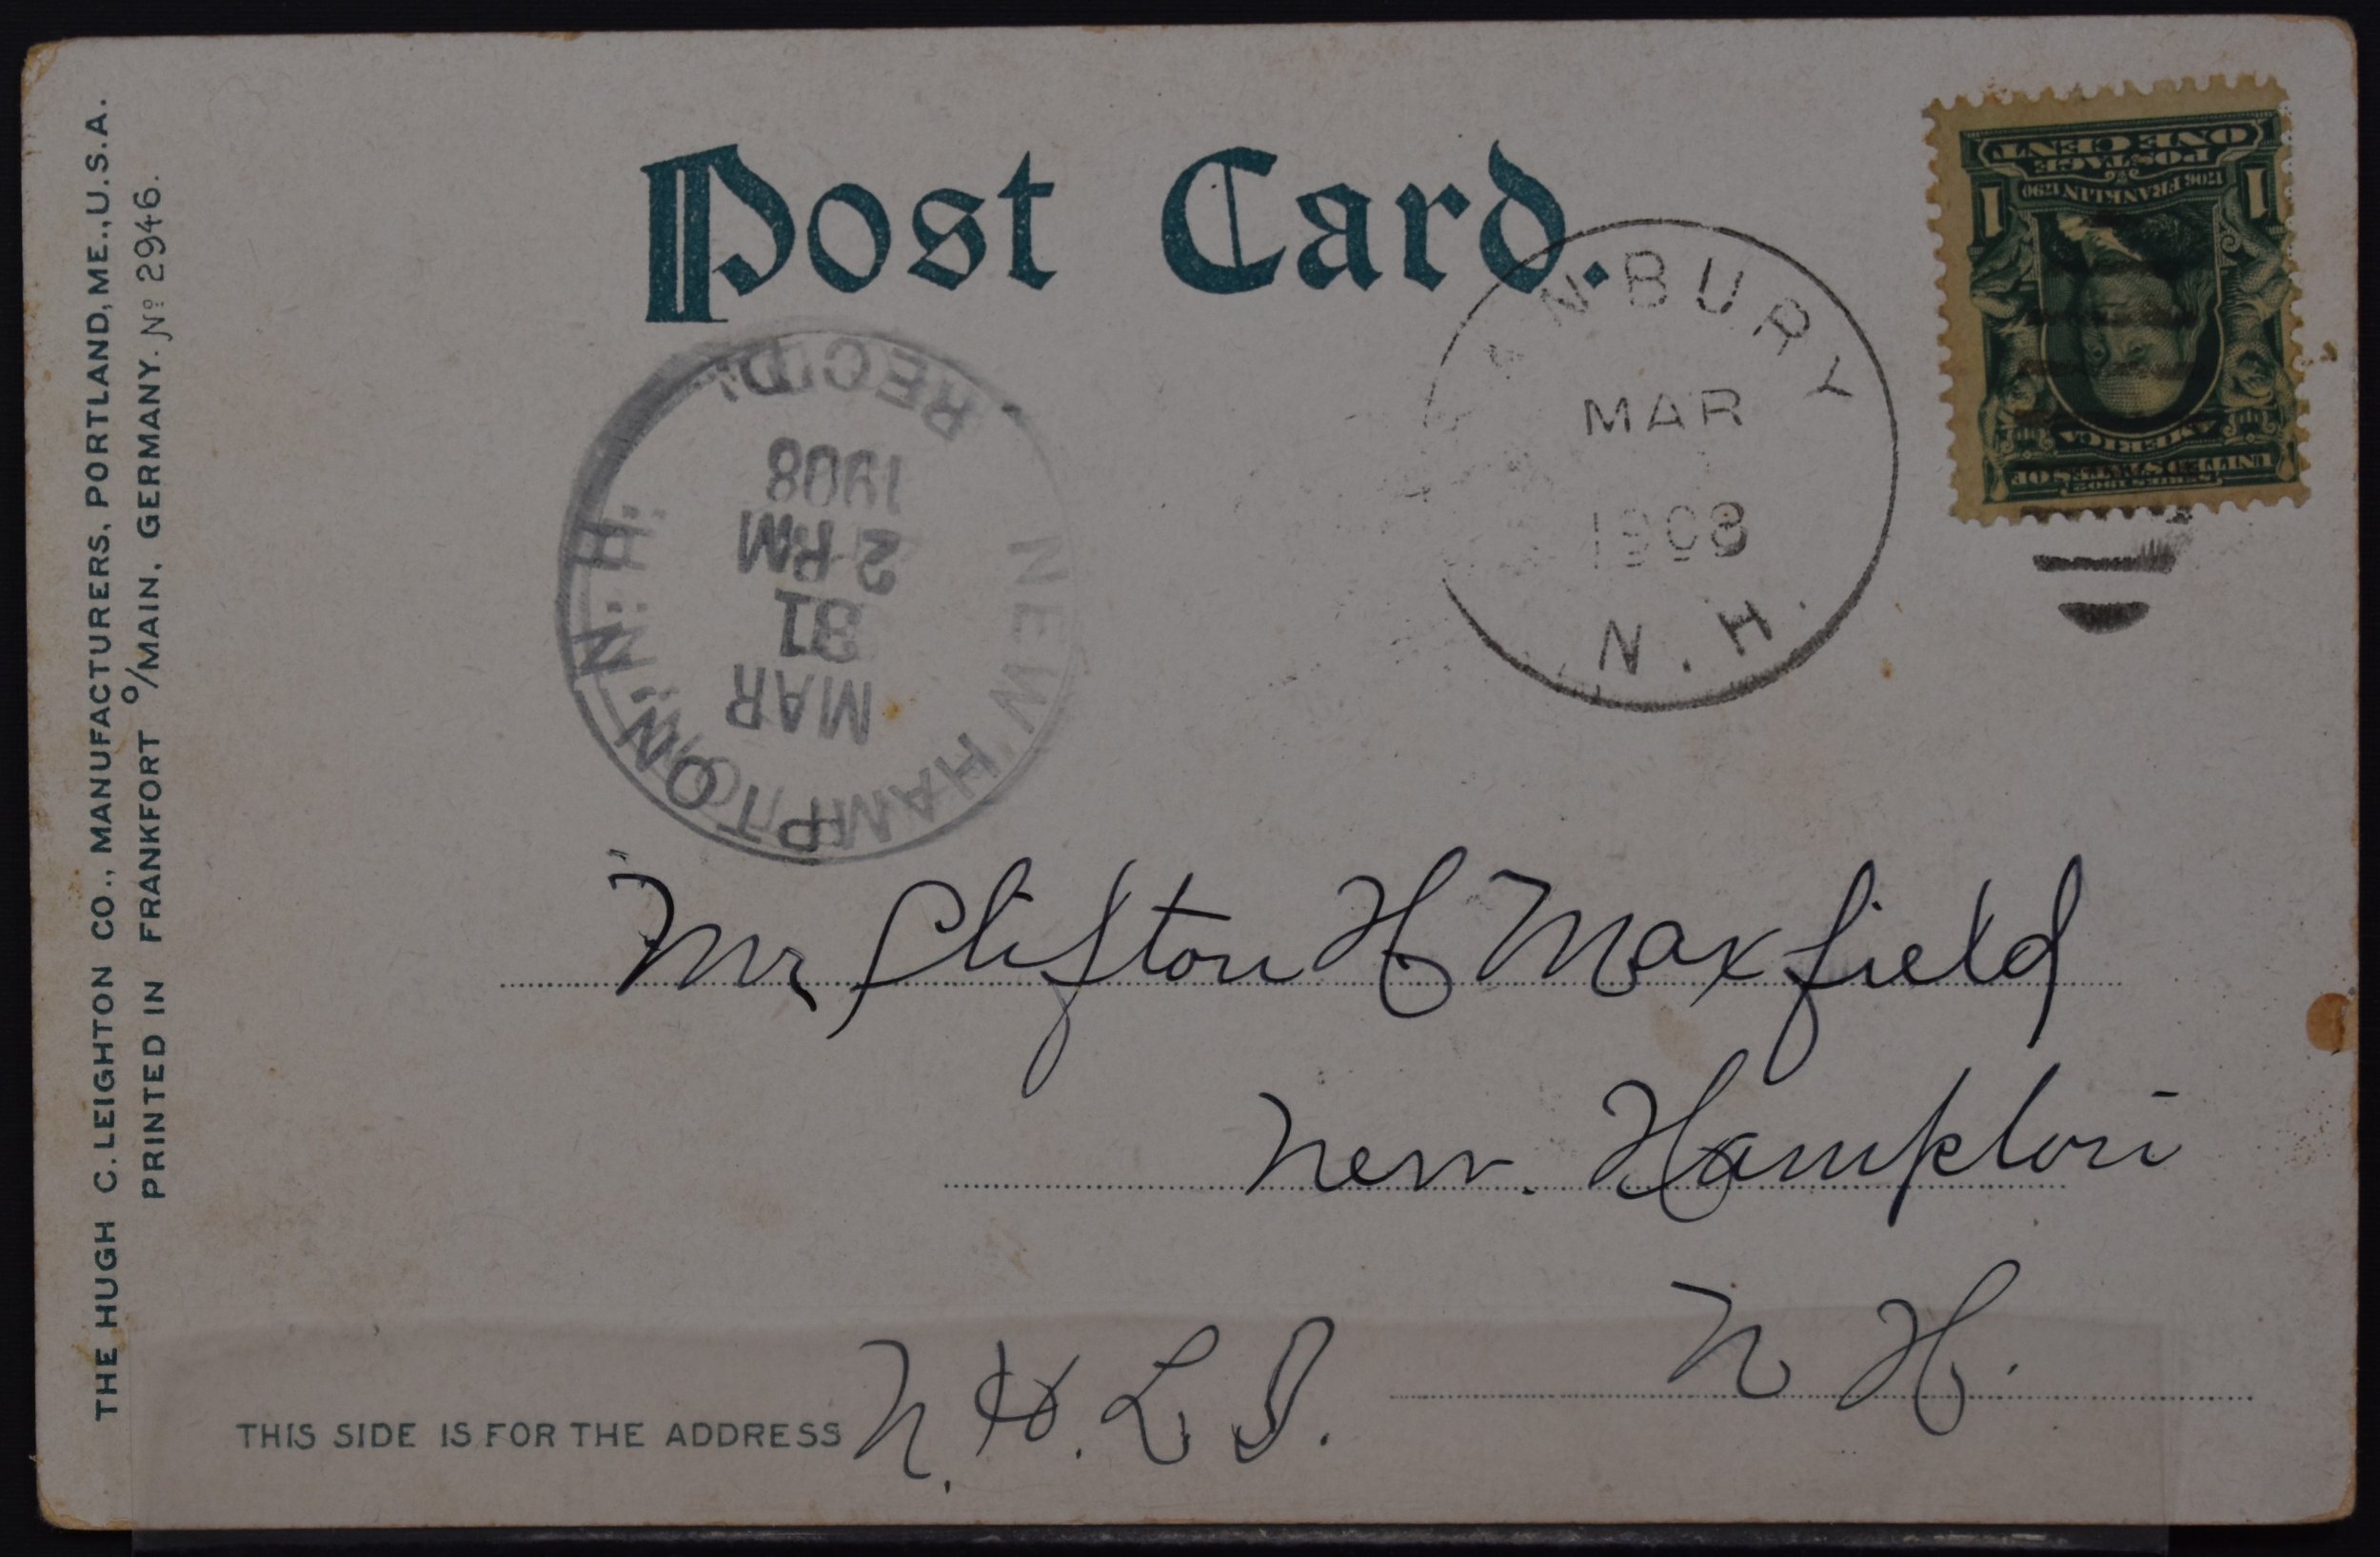 THE HUGH C. LEIGHTON CO., MANUFACTURERS, PORTLAND, ME., U.S.A.
PRINTED IN FRANKFORT o/MAIN, GERMANY. No 2946.
Post Card.
ONE CENT
POSTAGE
1706 FRANKLIN 1790
1 1
AMERICA
UNITED STATES OF
SERIES 1902
ANBURY
MAR
1908
N.H.
NEW HAMPTON, N.H.
MAR
31
2 PM
1908
REC'D.
Mr Clifton H Maxfield
New. Hampton
N H.
THIS SIDE IS FOR THE ADDRESS
N. H. L I.